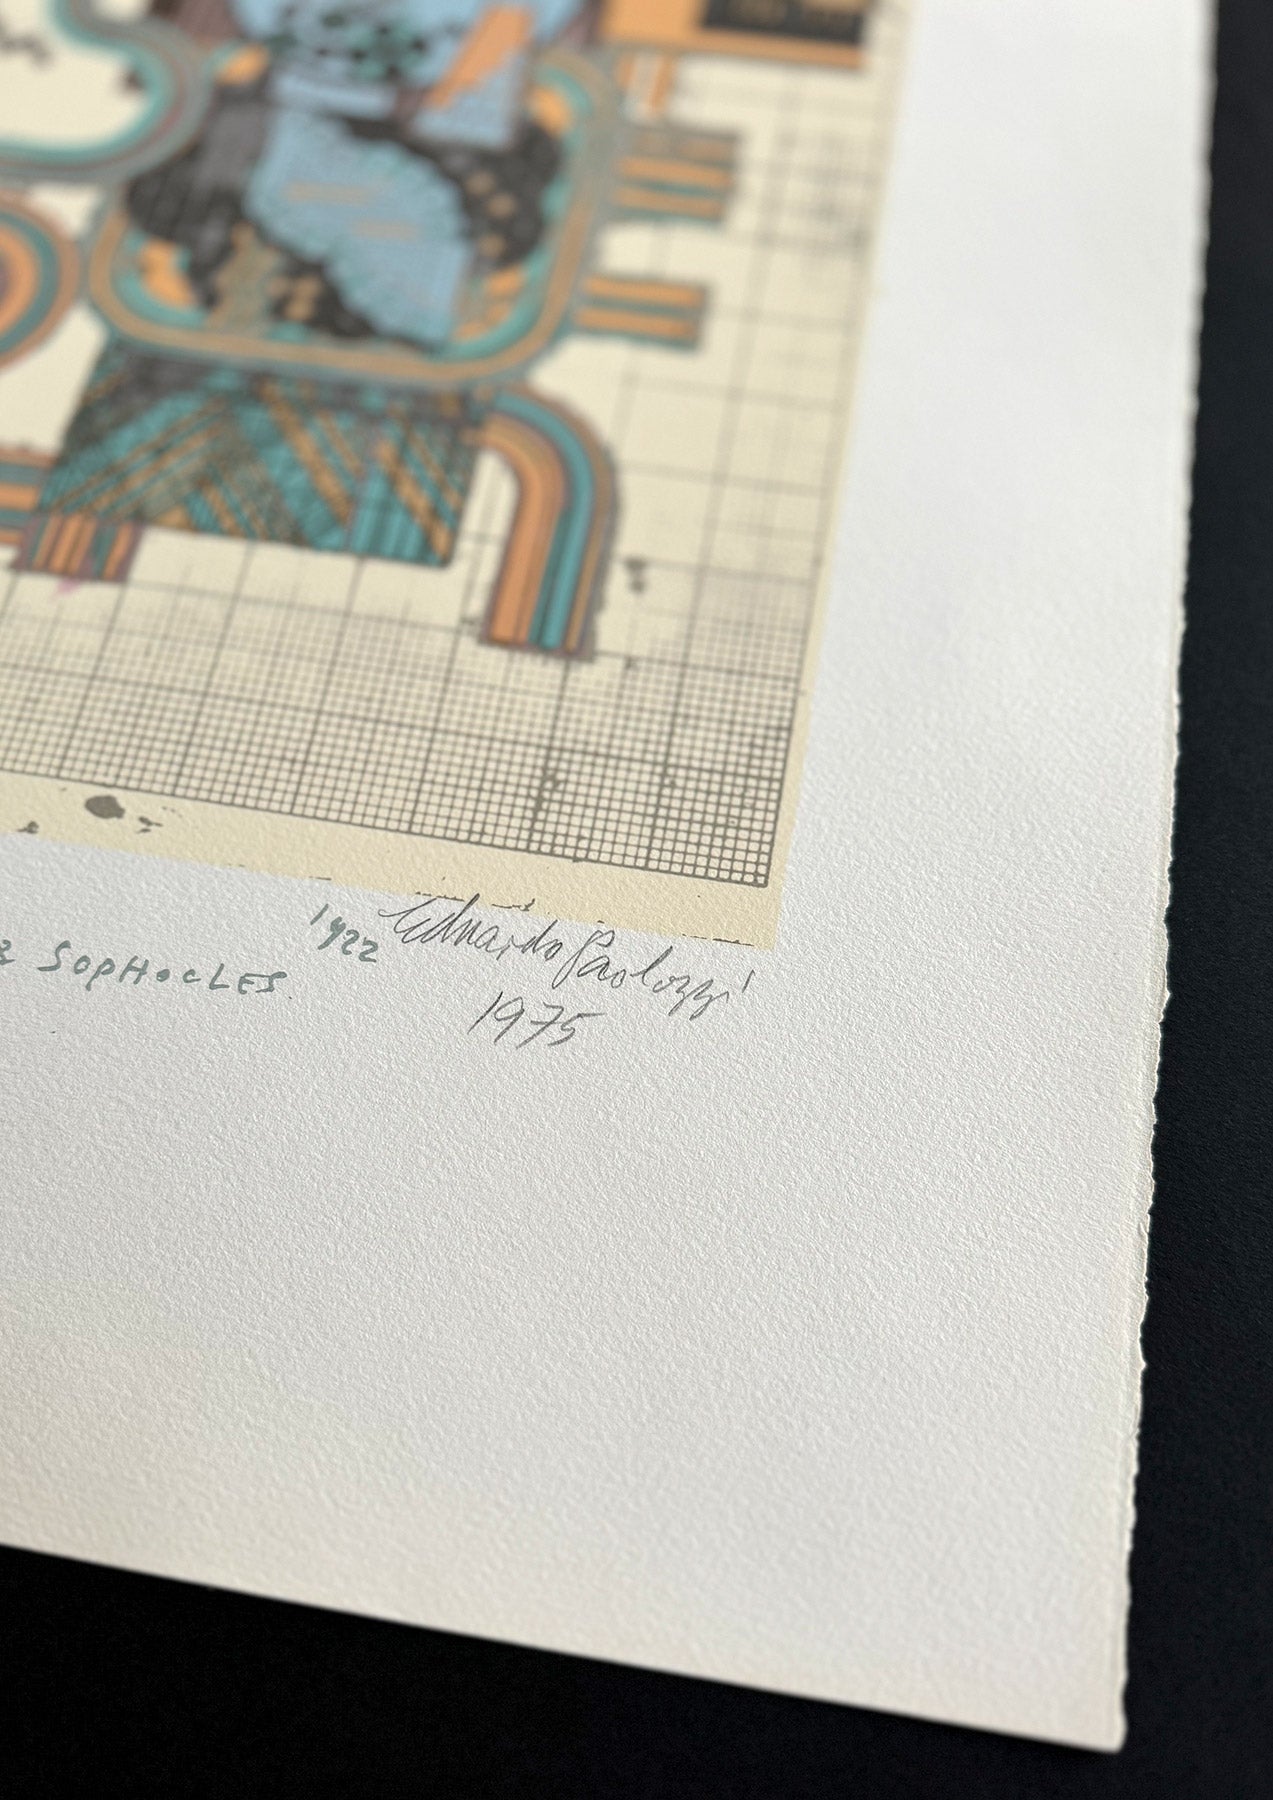 & SOPHOCLES. 1922
Eduardo Paolozzi
1975